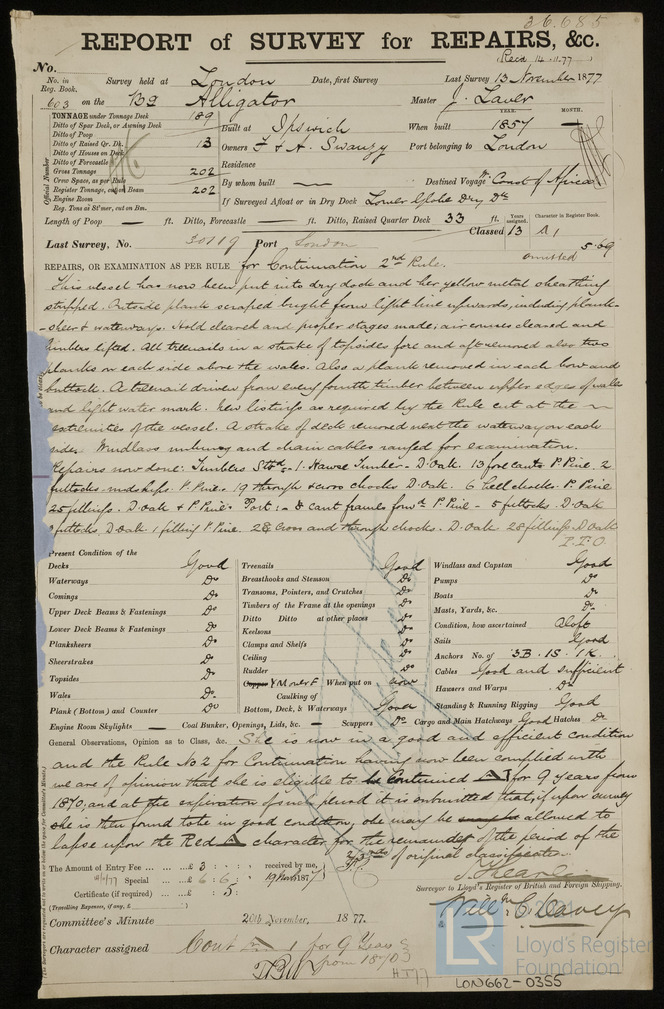 36.685
REPORT of SURVEY for REPAIRS, &c.
Recd 14.11.77
No.
No. in Reg. Book. Survey held at London Date, first Survey Last Survey 13 November 1877
603 on the Bg Alligator Master J. Laver
TONNAGE under Tonnage Deck 189
Ditto of Spar Deck, or Awning Deck
Ditto of Poop
Ditto of Raised Qr. Dk. 13
Ditto of Houses on Deck
Ditto of Forecastle
Gross Tonnage 202
Crew Space, as per Rule
Register Tonnage, cut on Beam 202
Engine Room
Reg. Tons as St'mer, cut on Bm.
Official Number
Built at Ipswich When built YEAR. 1857 MONTH. —
Owners F & A. Swanzy Port belonging to London
Residence
By whom built — Destined Voyage Coast of Africa
If Surveyed Afloat or in Dry Dock Lower Globe Dry Dk
Length of Poop — ft. Ditto, Forecastle — ft. Ditto, Raised Quarter Deck 33 ft.
Years assigned. Character in Register Book.
Classed 13 A1
Last Survey, No. 30119 Port London
omitted 5.69
REPAIRS, OR EXAMINATION AS PER RULE for Continuation 2nd Rule.
This vessel has now been put into dry dock and her yellow metal sheathing
stripped. Outside plank scraped bright from light line upwards, including plank-
-sheer & waterways. Hold cleared and proper stages made; air courses cleared and
limbers lifted. All treenails in a strake of topsides fore and aft removed also two
planks on each side above the wales. Also a plank removed in each bow and
buttock. A treenail driven from every fourth timber between upper edges of wales
and light water mark. New listings as required by the Rule cut at the
extremities of the vessel. A strake of deck removed next the waterway on each
side. Windlass unhung and chain cables ranged for examination.
Repairs now done: Timbers Stbd:- 1. Hawse Timber - D. Oak. 13 fore cants P. Pine. 2
futtocks midships. P. Pine. 19 through & cross chocks D. Oak. 6 heel chocks. P. Pine
25 fillings. D. Oak & P. Pine. Port:- 8 Cant frames forwd P. Pine - 5 futtocks. D. Oak
futtocks. D. Oak. 1 filling P. Pine. 28 Cross and through chocks. D. Oak 28 fillings D. Oak
P.T.O.
Present Condition of the
Decks Good
Waterways Do
Comings Do
Upper Deck Beams & Fastenings Do
Lower Deck Beams & Fastenings Do
Planksheers Do
Sheerstrakes Do
Topsides Do
Wales Do
Plank (Bottom) and Counter Do
Treenails Good
Breasthooks and Stemson Do
Transoms, Pointers, and Crutches Do
Timbers of the Frame at the openings Do
Ditto Ditto at other places Do
Keelsons Do
Clamps and Shelfs Do
Ceiling Do
Rudder Do
Copper Y M over F When put on now
Caulking of
Bottom, Deck, & Waterways Good
Windlass and Capstan Good
Pumps Do
Boats Do
Masts, Yards, &c. Do
Condition, how ascertained Aloft
Sails Good
Anchors No. of 3B. 1S. 1K.
Cables Good and sufficient
Hawsers and Warps Do
Standing & Running Rigging Good
Engine Room Skylights — Coal Bunker, Openings, Lids, &c. — Scuppers Do Cargo and Main Hatchways Good Hatches Do
General Observations, Opinion as to Class, &c. She is now in a good and efficient condition
and the Rule No 2 for Continuation having now been complied with
we are of opinion that she is eligible to be Continued A1 for 9 years from
1870, and at the expiration of such period it is submitted that, if upon survey
she is then found to be in good condition, she may be allowed to
lapse upon the Red A character for the remainder of the period of the
2/3rds of original classification.
The Amount of Entry Fee ... £ 3 : : received by me,
Special ... £ 6 : 6 : 19 Nov 1877
Certificate (if required) .. £ : 5 :
(Travelling Expenses, if any, £ )
Surveyor to Lloyd's Register of British and Foreign Shipping.
Will m C. Davey
Committee's Minute 20th November, 1877.
Character assigned Cont A 1 for 9 Years
from 1870
H.T.77
LR
Lloyd's Register
Foundation
LON662-0355